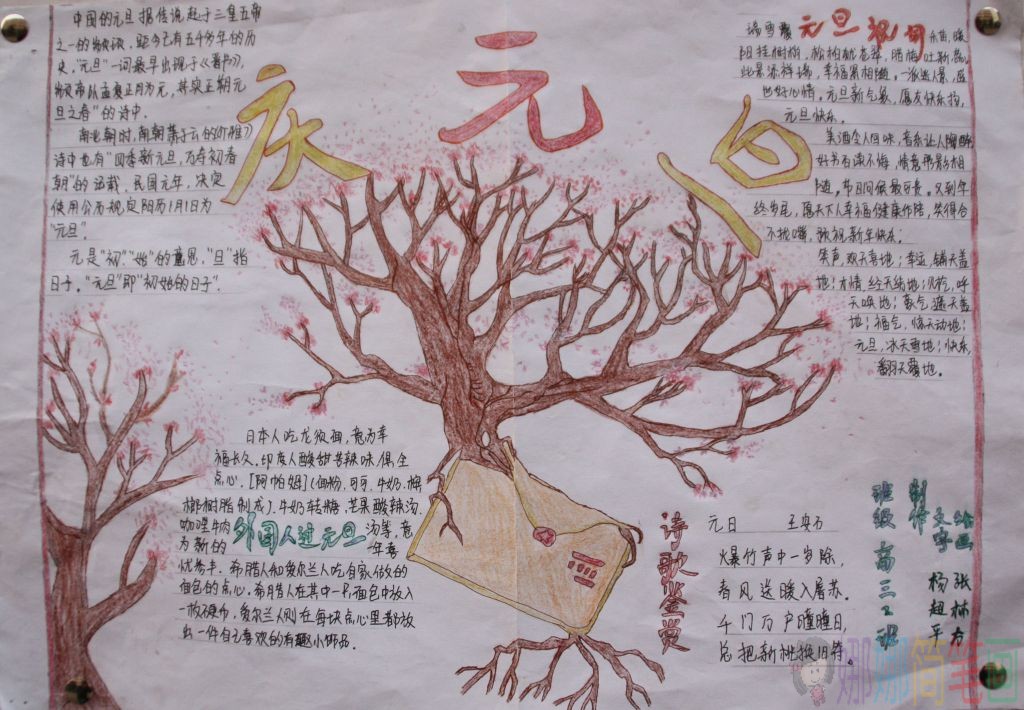 庆元旦
中国的元旦据传说起于三皇五帝
之一的颛顼，距今已有五千多年的历
史，"元旦"一词最早出现于《晋书》，
颛顼帝以孟夏正月为元，其实正朔元
旦之春"的诗中．
南北朝时，南朝萧子云的《介雅》
诗中也有"四季新元旦，万寿初春
朝"的记载，民国元年，决定
使用公历规定阳历1月1日为
"元旦"．
元是"初""始"的意思，"旦"指
日子．"元旦"即"初始的日子"．
元旦祝词
瑞雪
阳挂树梢，
此景添祥瑞，幸福累相随，一派迷人景，盛
世好心情．元旦新气象，愿友快乐拍，
元旦快乐．
美酒令人回味，音乐让人陶醉
好书百读不悔，情意带影相
随，节日问候最可贵，又到年
终岁尾，愿天下人幸福健康作陪，笑得合
不拢嘴，祝福新年快乐；
笑声，欢天喜地；幸运，铺天盖
地；才情，经天纬地；火炮，呼
天唤地；喜气，遮天盖
地；福气，惊天动地；
元旦，冰天雪地；快乐，
翻天覆地．
日本人吃龙须面，意为幸
福长久．印度人酸甜苦辣味俱全
点心．[阿帕姆]（面粉，可可，牛奶，梅
榔树脂制成）．牛奶转糖，芒果酸辣汤．
咖喱牛肉汤等，意
外国人过元旦
为新的一年喜
忧参半．希腊人和爱尔兰人吃自家做的
面包的点心．希腊人在其中一片面包中放入
一枚硬币，爱尔兰人则在每块点心里都放
出一件自己喜欢的有趣小饰品．
诗歌鉴赏
元日 王安石
爆竹声中一岁除，
春风送暖入屠苏．
千门万户曈曈日，
总把新桃换旧符．
绘画 张林方
文字 杨超平
制作
班级 高三2班
娜娜简笔画